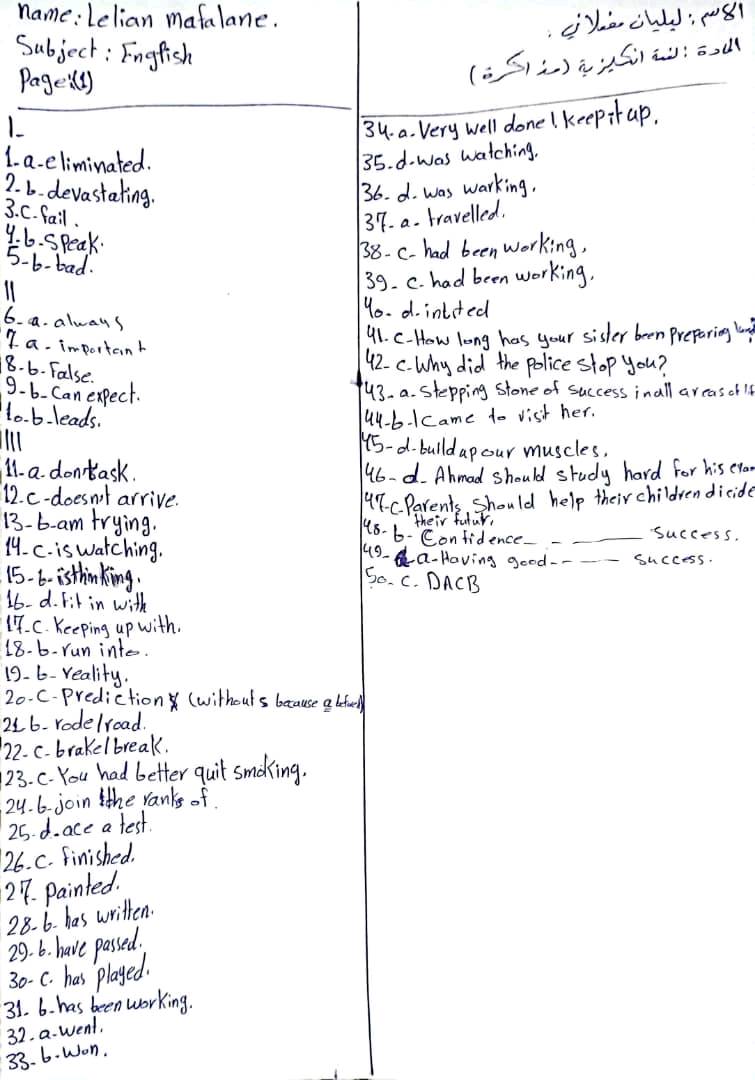 name: Lelian mafalane.
Subject: English
Page:(1)
الاسم: ليليان مفعلاني.
المادة: لغة انكليزية (مذاكرة)
I-
1-a-eliminated.
2-b-devastating.
3.c-fail.
4-b-speak.
5-b-bad.
II
6-a-always
7-a-importeint
8-b-False.
9-b-Can expect.
10-b-leads.
III
11-a-don't ask.
12-c-doesnot arrive.
13-b-am trying.
14-c-is watching.
15-b-isthinking.
16-d-fit in with
17-c-Keeping up with.
18-b-run into.
19-b-reality.
20-C-Prediction (without s because a before)
21-b-rode/road.
22-c-brake/break.
23-c-You had better quit smoking.
24-b-join the ranks of.
25-d-ace a test.
26-c-finished.
27-painted.
28-b-has written.
29-b-have passed.
30-c-has played.
31-b-has been working.
32-a-went.
33-b-Won.
34-a-Very well done! keep it up.
35-d-was watching.
36-d-was warking.
37-a-travelled.
38-c-had been working.
39-c-had been working.
40-d-
41-c-How long has your sister been preparing
42-c-Why did the police stop you?
43-a-Stepping Stone of success in all areas of
44-b-I came to visit her.
45-d-build ap our muscles.
46-d-Ahmad should study hard for his
47-c-Parents should help their children dicide
their futur.
48-b-Confidence - - —— success.
49-a-Having good - - —— success.
50-c-DACB